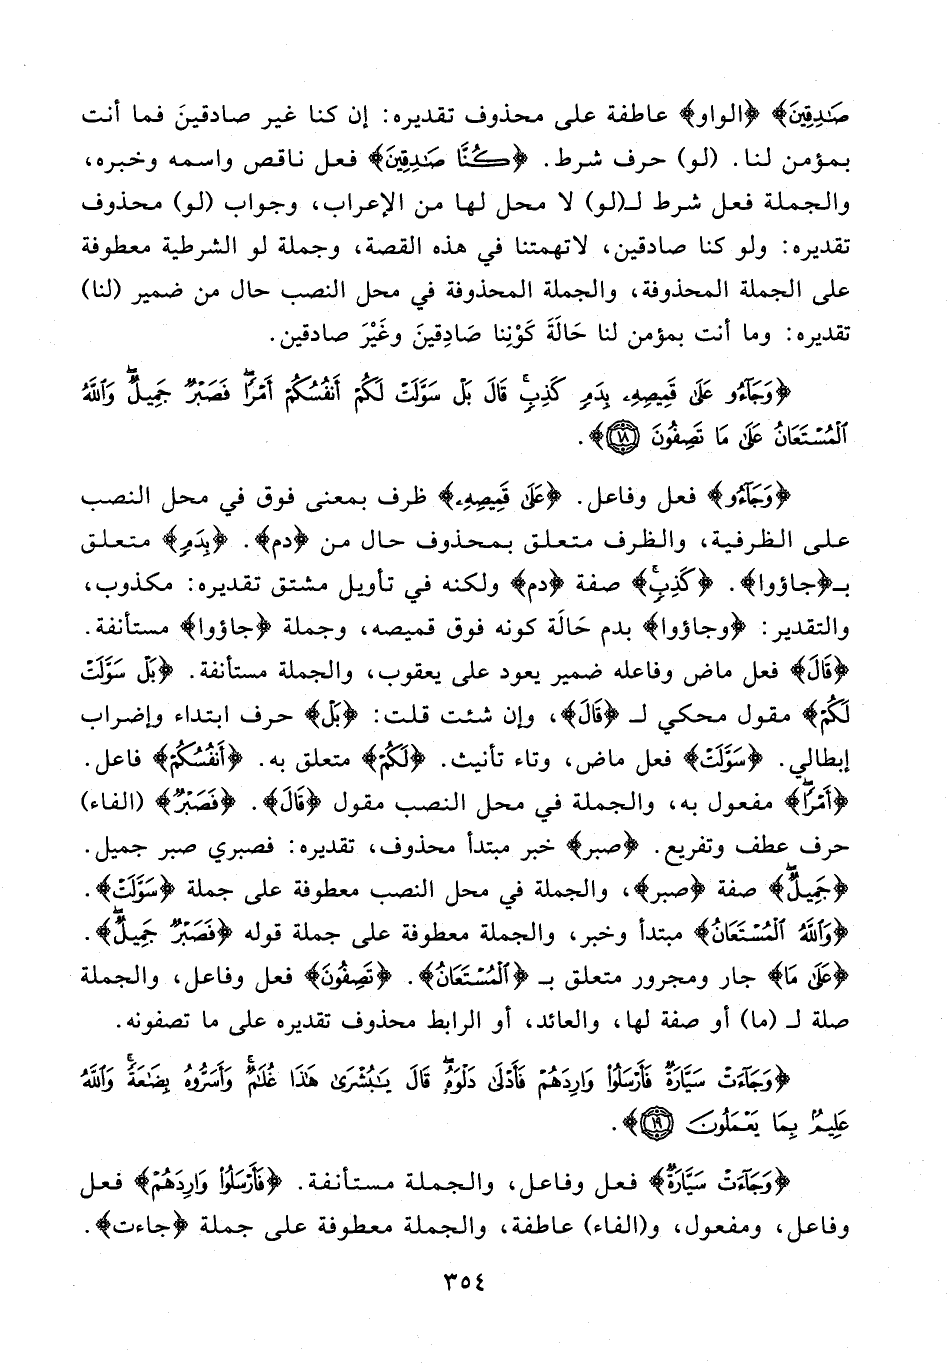 صَٰدِقِينَ﴾ ﴿الواو﴾ عاطفة على محذوف تقديره: إن كنا غير صادقينَ فما أنت
بمؤمن لنا. (لو) حرف شرط. ﴿كُنَّا صَٰدِقِينَ﴾ فعل ناقص واسمه وخبره،
والجملة فعل شرط لـ(لو) لا محل لها من الإعراب، وجواب (لو) محذوف
تقديره: ولو كنا صادقين، لاتهمتنا في هذه القصة، وجملة لو الشرطية معطوفة
على الجملة المحذوفة، والجملة المحذوفة في محل النصب حال من ضمير (لنا)
تقديره: وما أنت بمؤمن لنا حَالَةَ كَوْنِنا صَادِقِينَ وغَيْرَ صادقين.
﴿وَجَآءُو عَلَىٰ قَمِيصِهِۦ بِدَمٍ كَذِبٍۚ قَالَ بَلْ سَوَّلَتْ لَكُمْ أَنفُسُكُمْ أَمْرًاۖ فَصَبْرٌ جَمِيلٌۖ وَٱللَّهُ
ٱلْمُسْتَعَانُ عَلَىٰ مَا تَصِفُونَ ١٨﴾.
﴿وَجَآءُو﴾ فعل وفاعل. ﴿عَلَىٰ قَمِيصِهِۦ﴾ ظرف بمعنى فوق في محل النصب
على الظرفية، والظرف متعلق بمحذوف حال من ﴿دم﴾. ﴿بِدَمٍ﴾ متعلق
بـ﴿جاؤوا﴾. ﴿كَذِبٍۚ﴾ صفة ﴿دم﴾ ولكنه في تأويل مشتق تقديره: مكذوب،
والتقدير: ﴿وجاؤوا﴾ بدم حَالَة كونه فوق قميصه، وجملة ﴿جاؤوا﴾ مستأنفة.
﴿قَالَ﴾ فعل ماض وفاعله ضمير يعود على يعقوب، والجملة مستأنفة. ﴿بَلْ سَوَّلَتْ
لَكُمْ﴾ مقول محكي لـ ﴿قَالَ﴾، وإن شئت قلت: ﴿بَلْ﴾ حرف ابتداء وإضراب
إبطالي. ﴿سَوَّلَتْ﴾ فعل ماض، وتاء تأنيث. ﴿لَكُمْ﴾ متعلق به. ﴿أَنفُسُكُمْ﴾ فاعل.
﴿أَمْرًاۖ﴾ مفعول به، والجملة في محل النصب مقول ﴿قَالَ﴾. ﴿فَصَبْرٌ﴾ (الفاء)
حرف عطف وتفريع. ﴿صبر﴾ خبر مبتدأ محذوف، تقديره: فصبري صبر جميل.
﴿جَمِيلٌۖ﴾ صفة ﴿صبر﴾، والجملة في محل النصب معطوفة على جملة ﴿سَوَّلَتْ﴾.
﴿وَٱللَّهُ ٱلْمُسْتَعَانُ﴾ مبتدأ وخبر، والجملة معطوفة على جملة قوله ﴿فَصَبْرٌ جَمِيلٌۖ﴾.
﴿عَلَىٰ مَا﴾ جار ومجرور متعلق بـ ﴿ٱلْمُسْتَعَانُ﴾. ﴿تَصِفُونَ﴾ فعل وفاعل، والجملة
صلة لـ (ما) أو صفة لها، والعائد، أو الرابط محذوف تقديره على ما تصفونه.
﴿وَجَآءَتْ سَيَّارَةٌ فَأَرْسَلُوا۟ وَارِدَهُمْ فَأَدْلَىٰ دَلْوَهُۥۖ قَالَ يَٰبُشْرَىٰ هَٰذَا غُلَٰمٌۚ وَأَسَرُّوهُ بِضَٰعَةًۚ وَٱللَّهُ
عَلِيمٌۢ بِمَا يَعْمَلُونَ ١٩﴾.
﴿وَجَآءَتْ سَيَّارَةٌ﴾ فعل وفاعل، والجملة مستأنفة. ﴿فَأَرْسَلُوا۟ وَارِدَهُمْ﴾ فعل
وفاعل، ومفعول، و(الفاء) عاطفة، والجملة معطوفة على جملة ﴿جاءت﴾.
٣٥٤